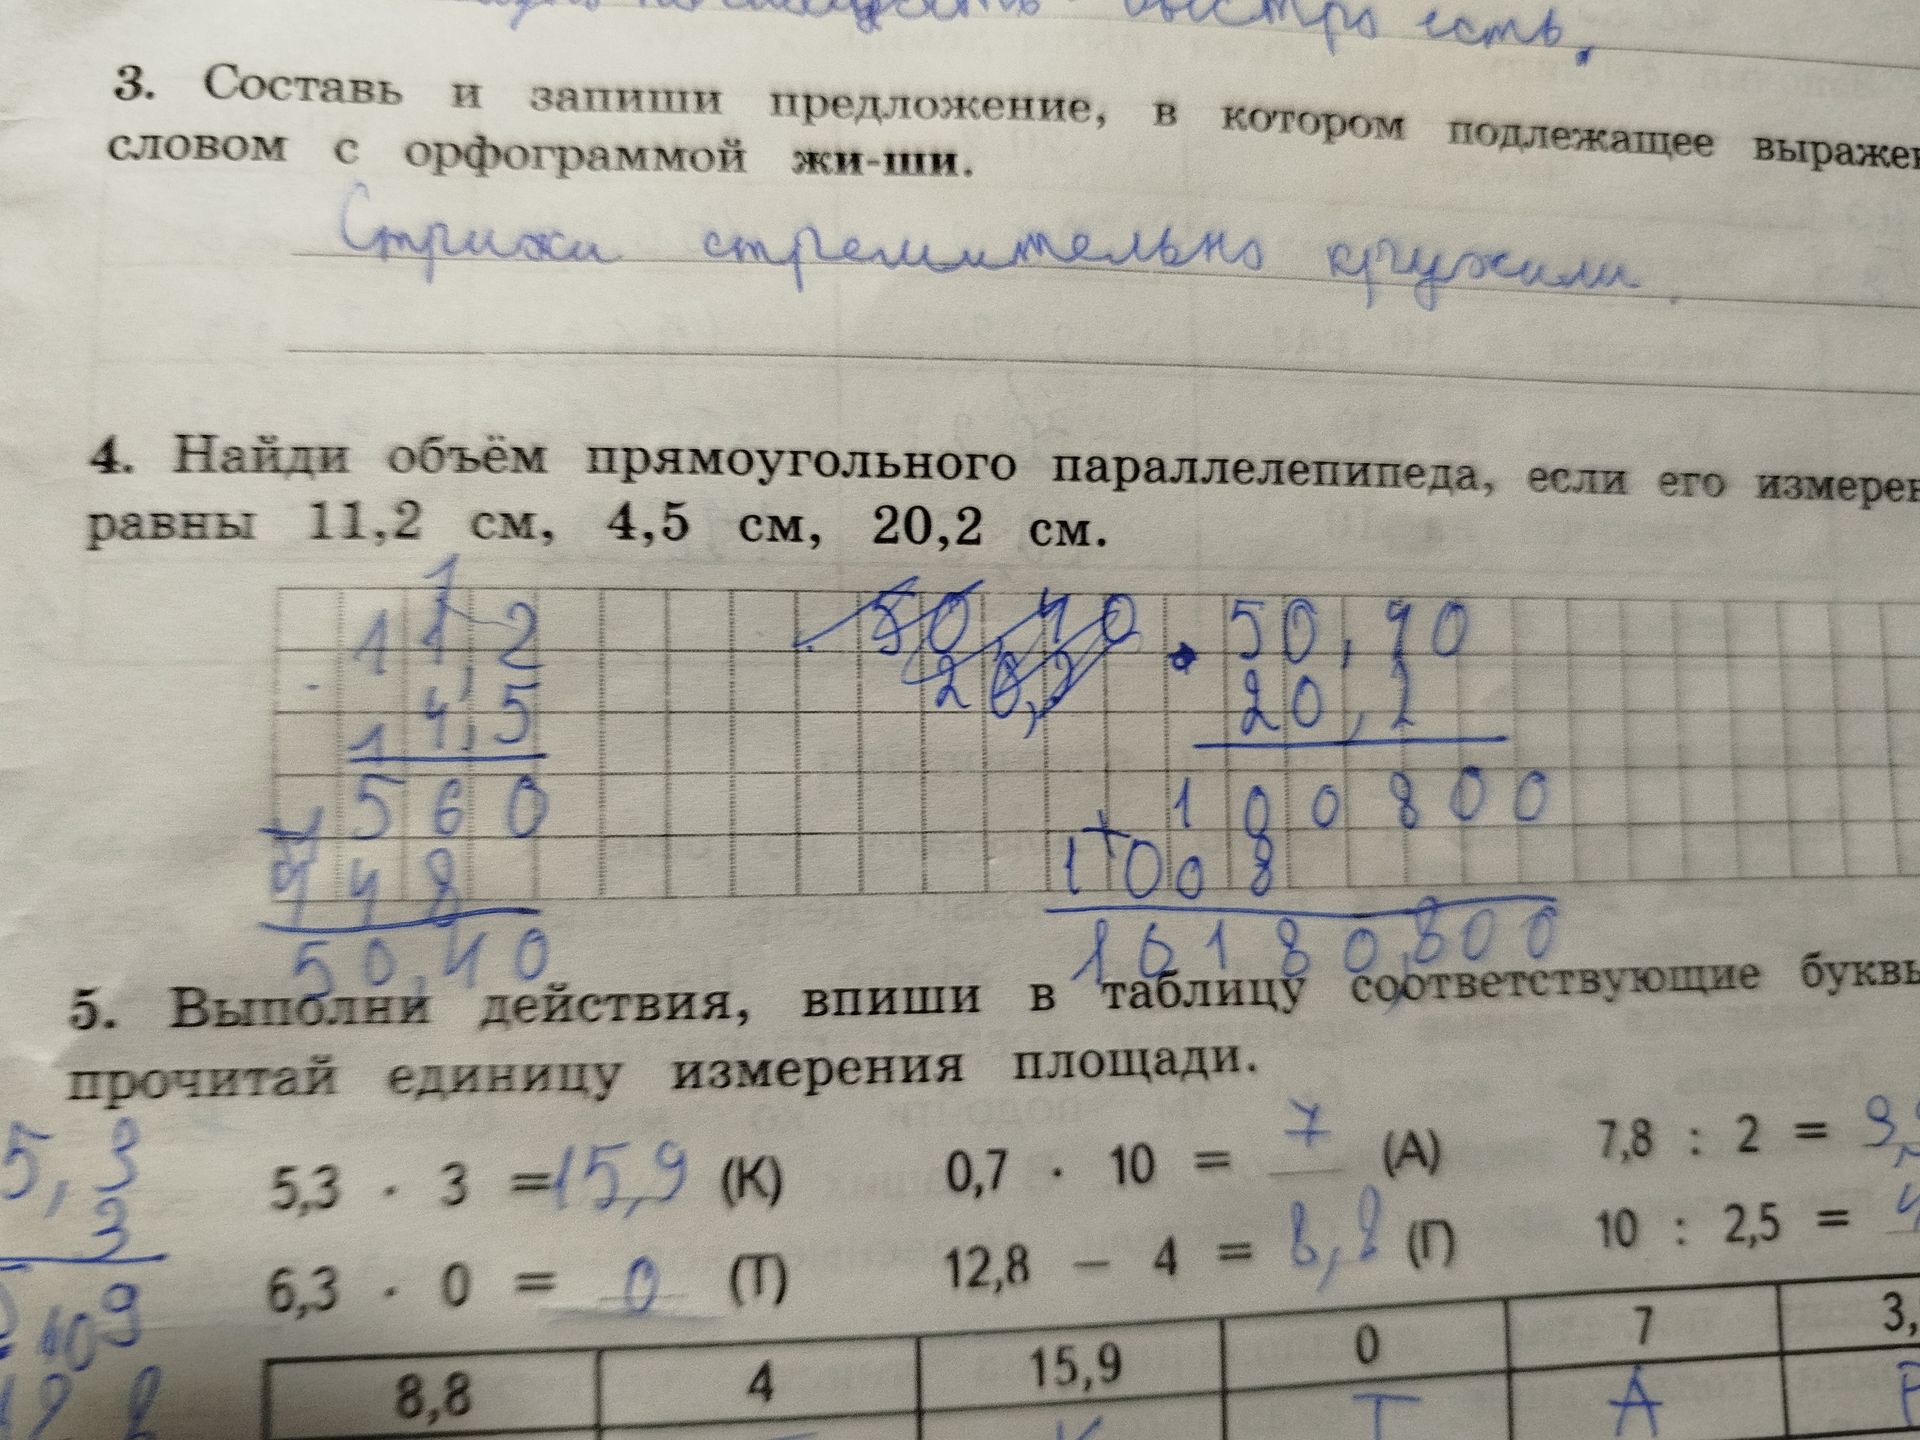 быстро есть.
3. Составь и запиши предложение, в котором подлежащее выражен
словом с орфограммой жи-ши.
Стрижи стремительно кружили.
4. Найди объём прямоугольного параллелепипеда, если его измерен
равны 11,2 см, 4,5 см, 20,2 см.
1
11,2 50,40 50,40
4,5 20,2 20,2
560 100800
448 1008
50,40 10180,800
5. Выполни действия, впиши в таблицу соответствующие буквы
прочитай единицу измерения площади.
5,3 5,3 · 3 = 15,9 (К) 0,7 · 10 = 7 (А) 7,8 : 2 = 3,9
3 6,3 · 0 = 0 (Т) 12,8 − 4 = 8,8 (Г) 10 : 2,5 = 4
8,8 4 15,9 0 7 3,
К Т А Р